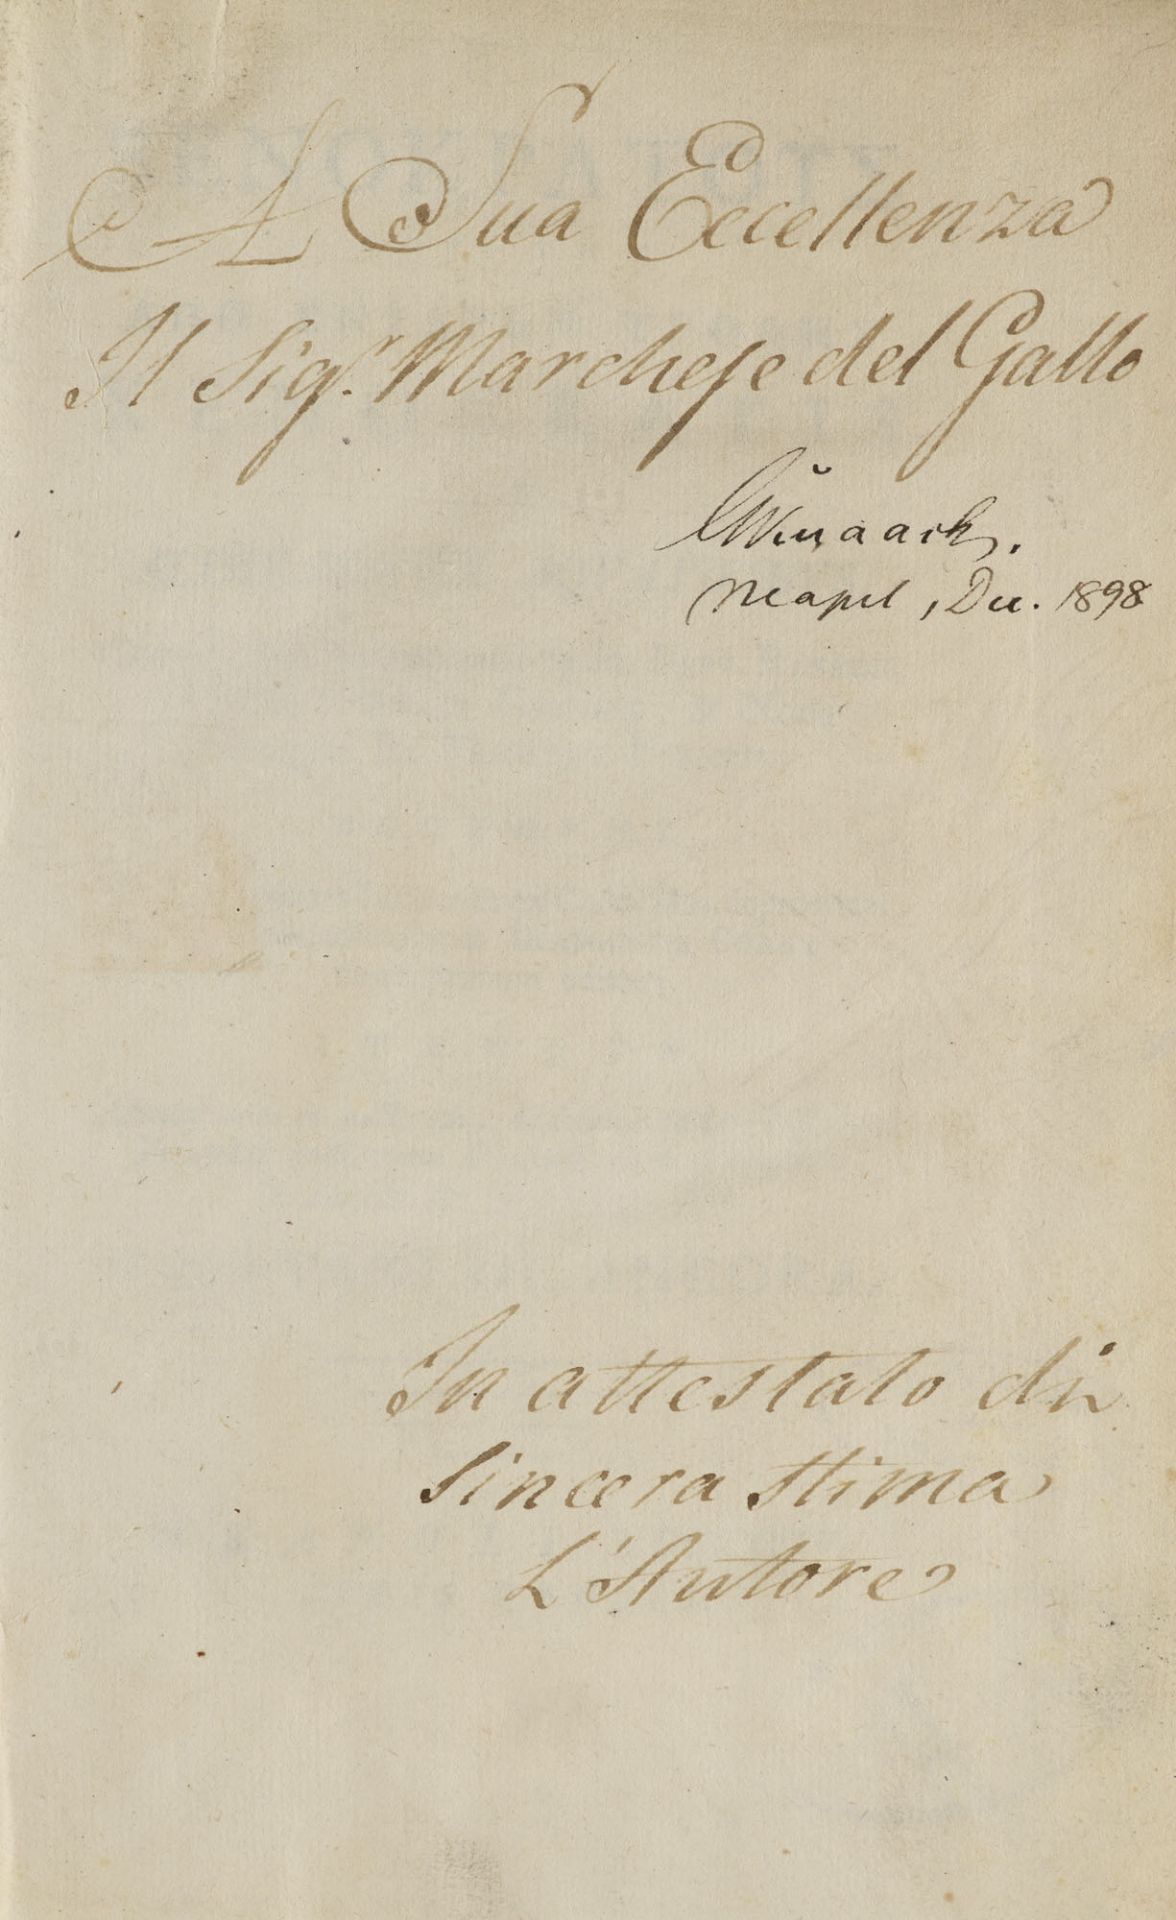 A Sua Eccellenza
Il Sig.r Marchese del Gallo
Neapel, Dec. 1898
In attestato di
sincera stima
L'Autore